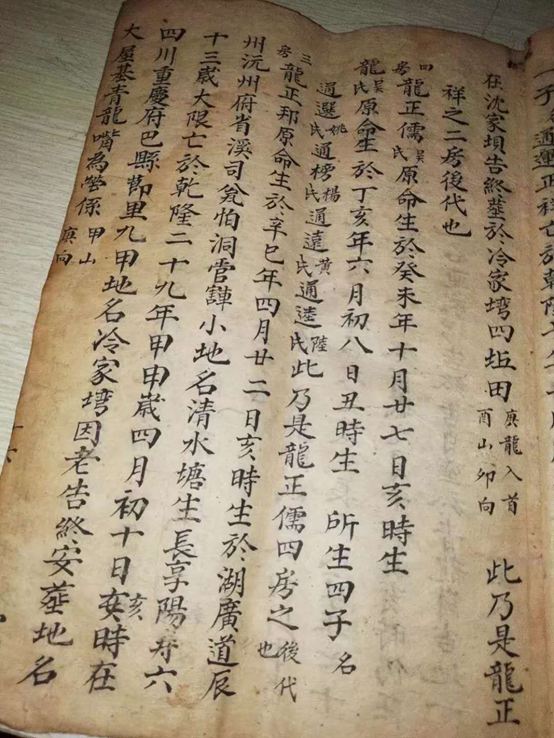 在沈家埧告終塟於冷家塆四坵田 庚龍入首 酉山卯向 此乃是龍正
祥之二房後代也
四房龍正儒吴氏原命生於癸未年十月廿七日亥時生
龍吴氏原命生於丁亥年六月初八日丑時生 所生四子名
通選姚氏通楞楊氏通遠黄氏通逵陸氏此乃是龍正儒四房之後代也
三房龍正邦原命生於辛巳年四月廿二日亥時生於湖廣道辰
州沅州府省溪司瓮怕洞雲譁小地名清水塘生長享陽寿六
十三歲大限亡於乾隆二十九年甲申歲四月初十日亥時在
四川重慶府巴縣節里九甲地名冷家塆因老告終安塟地名
大屋基青龍嘴為塋係甲山庚向